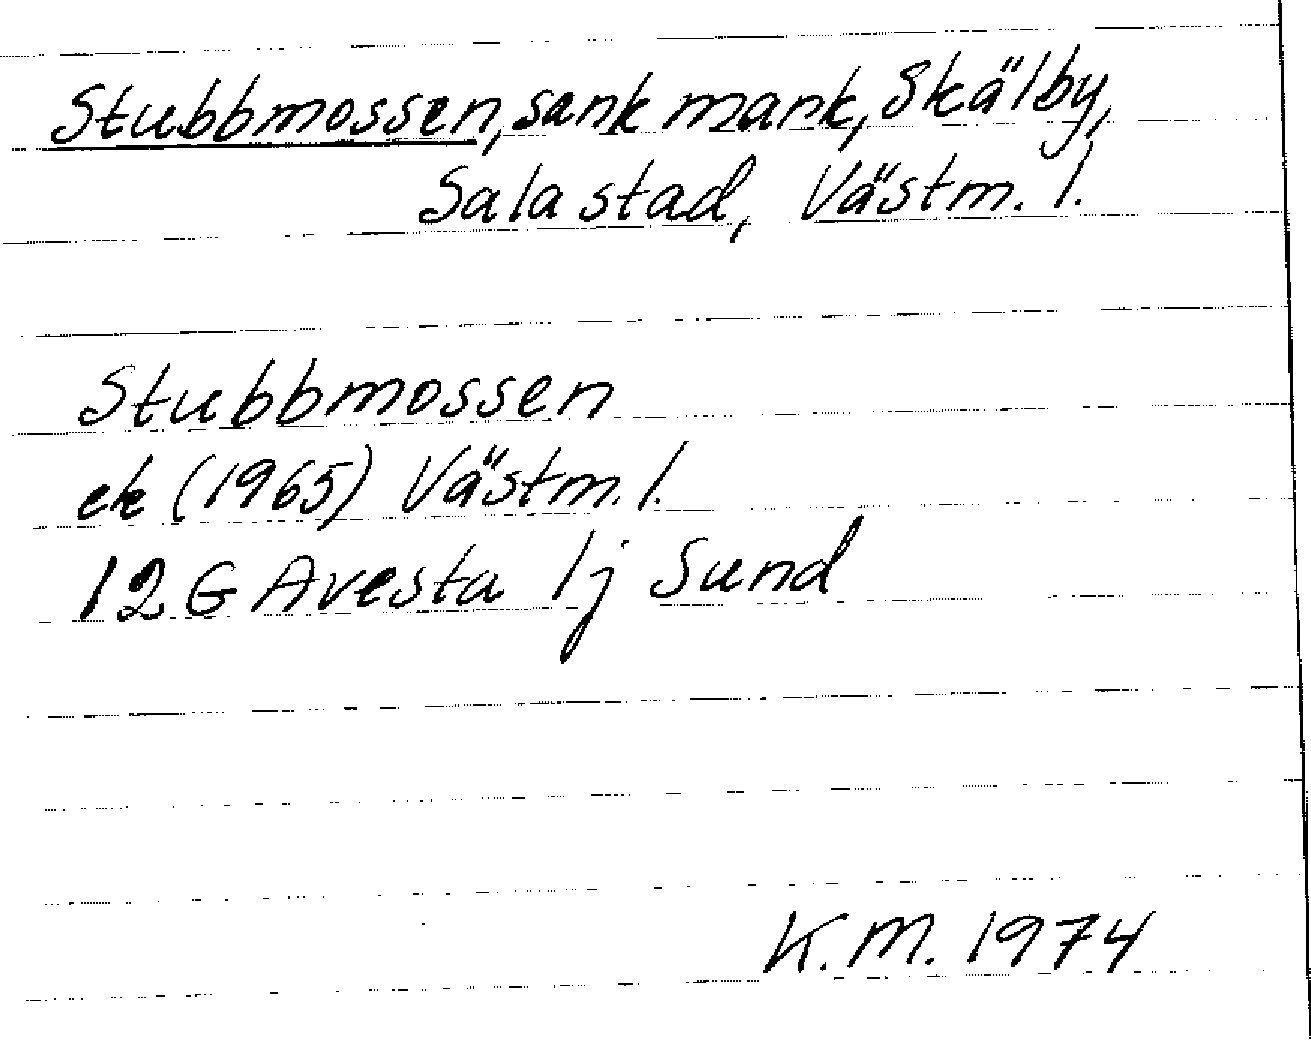 Stubbmossen, sank mark, Skälby,
Sala stad, Västm. l.
Stubbmossen
ek (1965) Västm. l.
12 G Avesta 1j Sund
K.M. 1974